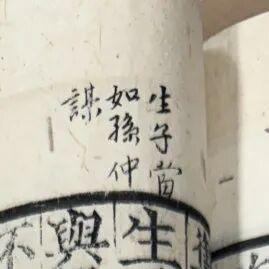 生子當
如孫仲
謀
生
與
不